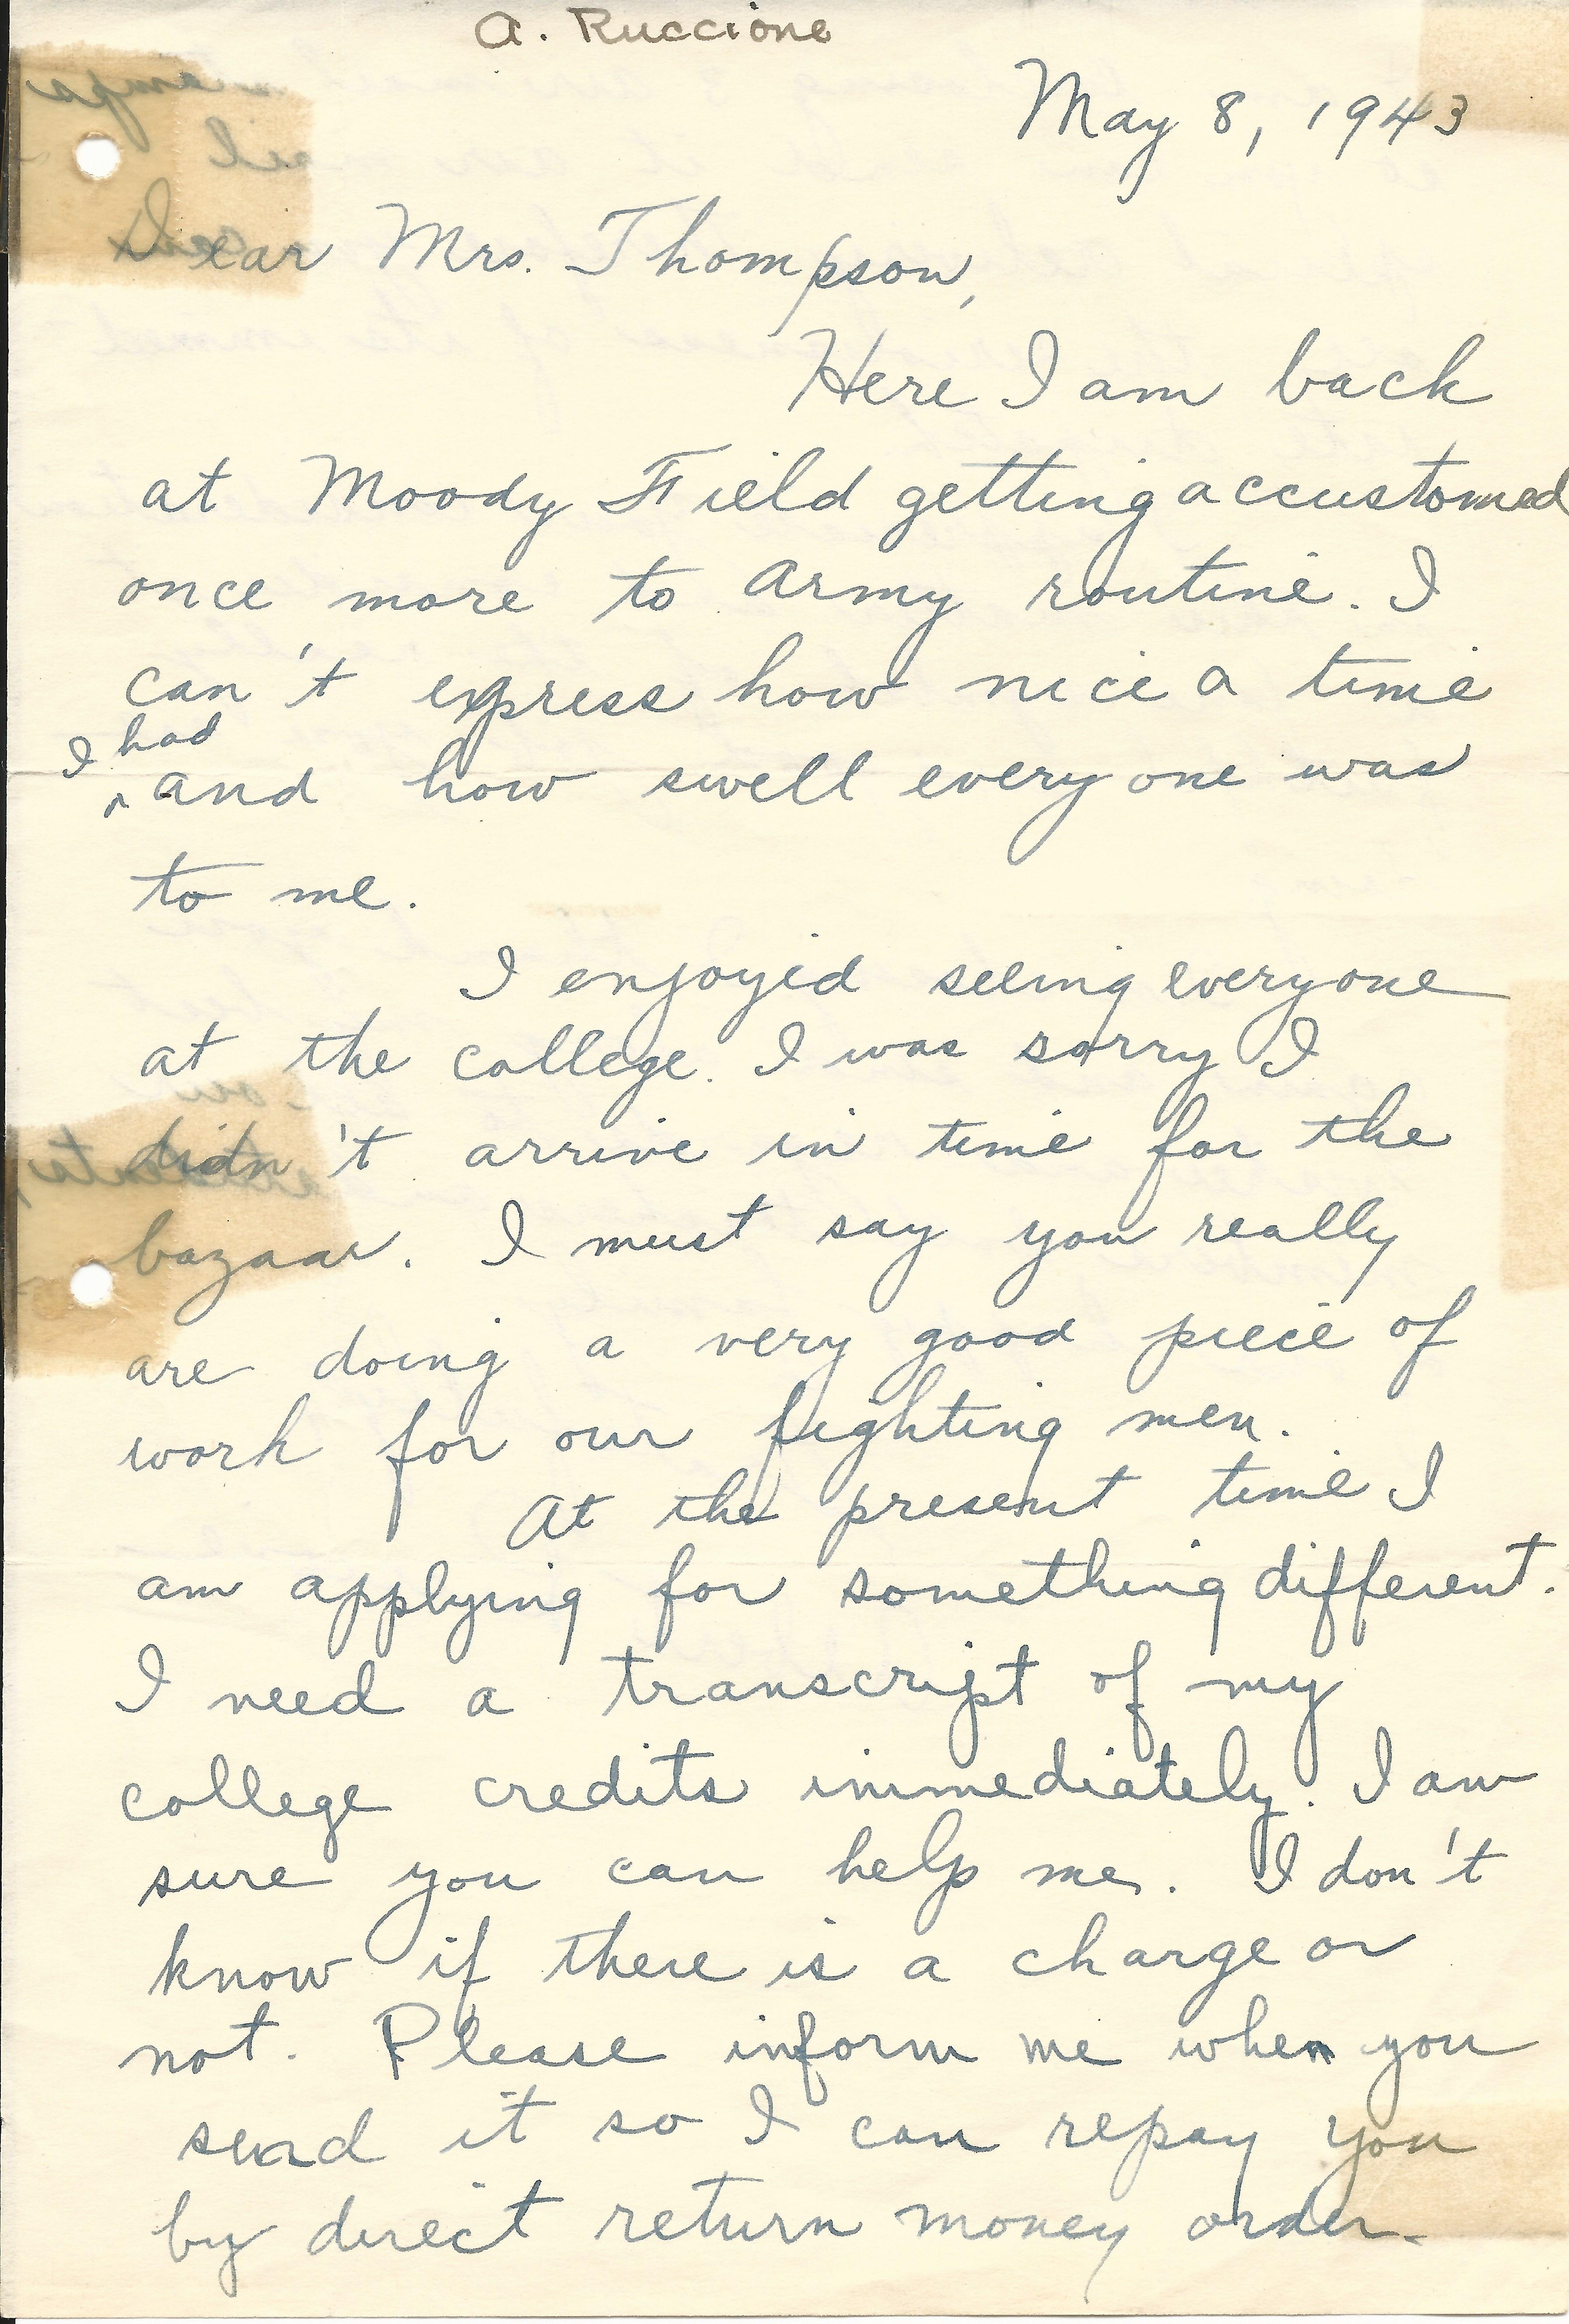 A. Ruccione
May 8, 1943
Dear Mrs. Thompson,
Here I am back
at Moody Field getting accustomed
once more to army routine. I
can't express how nice a time
I had
^ and how swell everyone was
to me.
I enjoyed seeing everyone
at the college. I was sorry I
didn't arrive in time for the
bazaar. I must say you really
are doing a very good piece of
work for our fighting men.
At the present time I
am applying for something different.
I need a transcript of my
college credits immediately. I am
sure you can help me. I don't
know if there is a charge or
not. Please inform me when you
send it so I can repay you
by direct return money order.